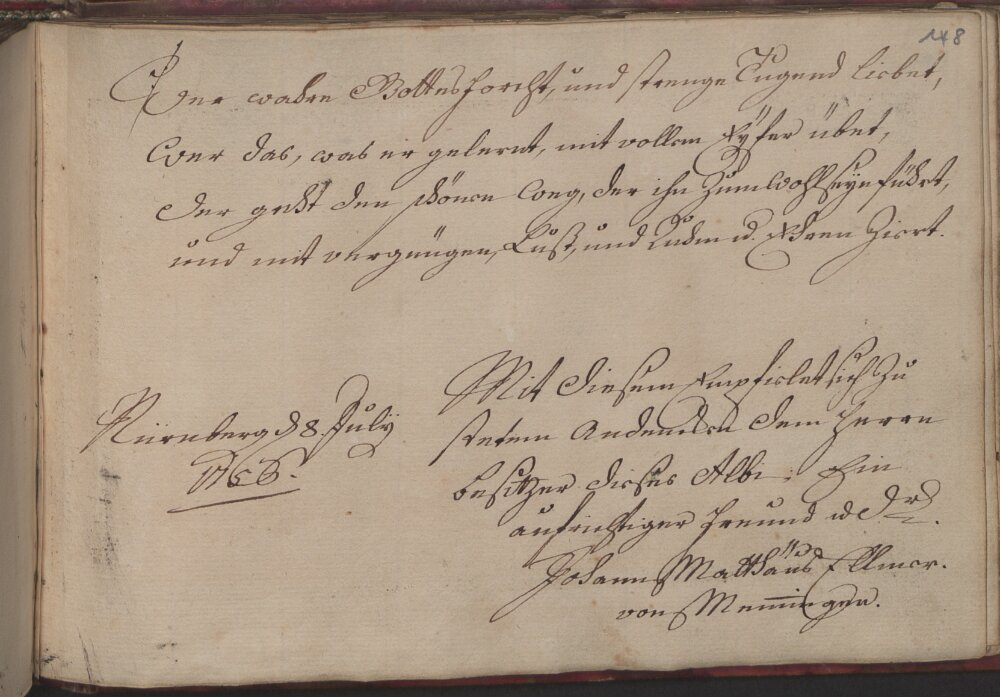 148
Wer wahre Gottesforcht, und strenge Tugend liebet,
Wer das, was er gelernt, mit vollem Eÿfer übet,
der geht den schönen Weg, der ihn zum Wohlseÿn führt,
und mit vergnügen, Lust, und Ruhm u. Ehren Ziert.
Mit diesem Empfielet sich zu
Nürnberg d 8. Julÿ
stetem Andencken dem Herrn
besitzer dieses Albi. Ein
aufrichtiger freund u. Dr.
Johann Matthäus Ellmer.
von Memingen.